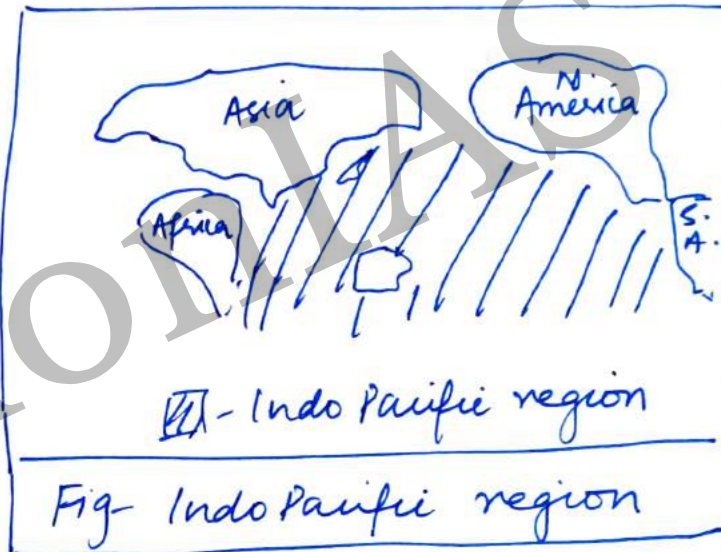 Asia
N.
America
Africa
S.
A.
- Indo Pacific region
Fig- Indo Pacific region
onIAS